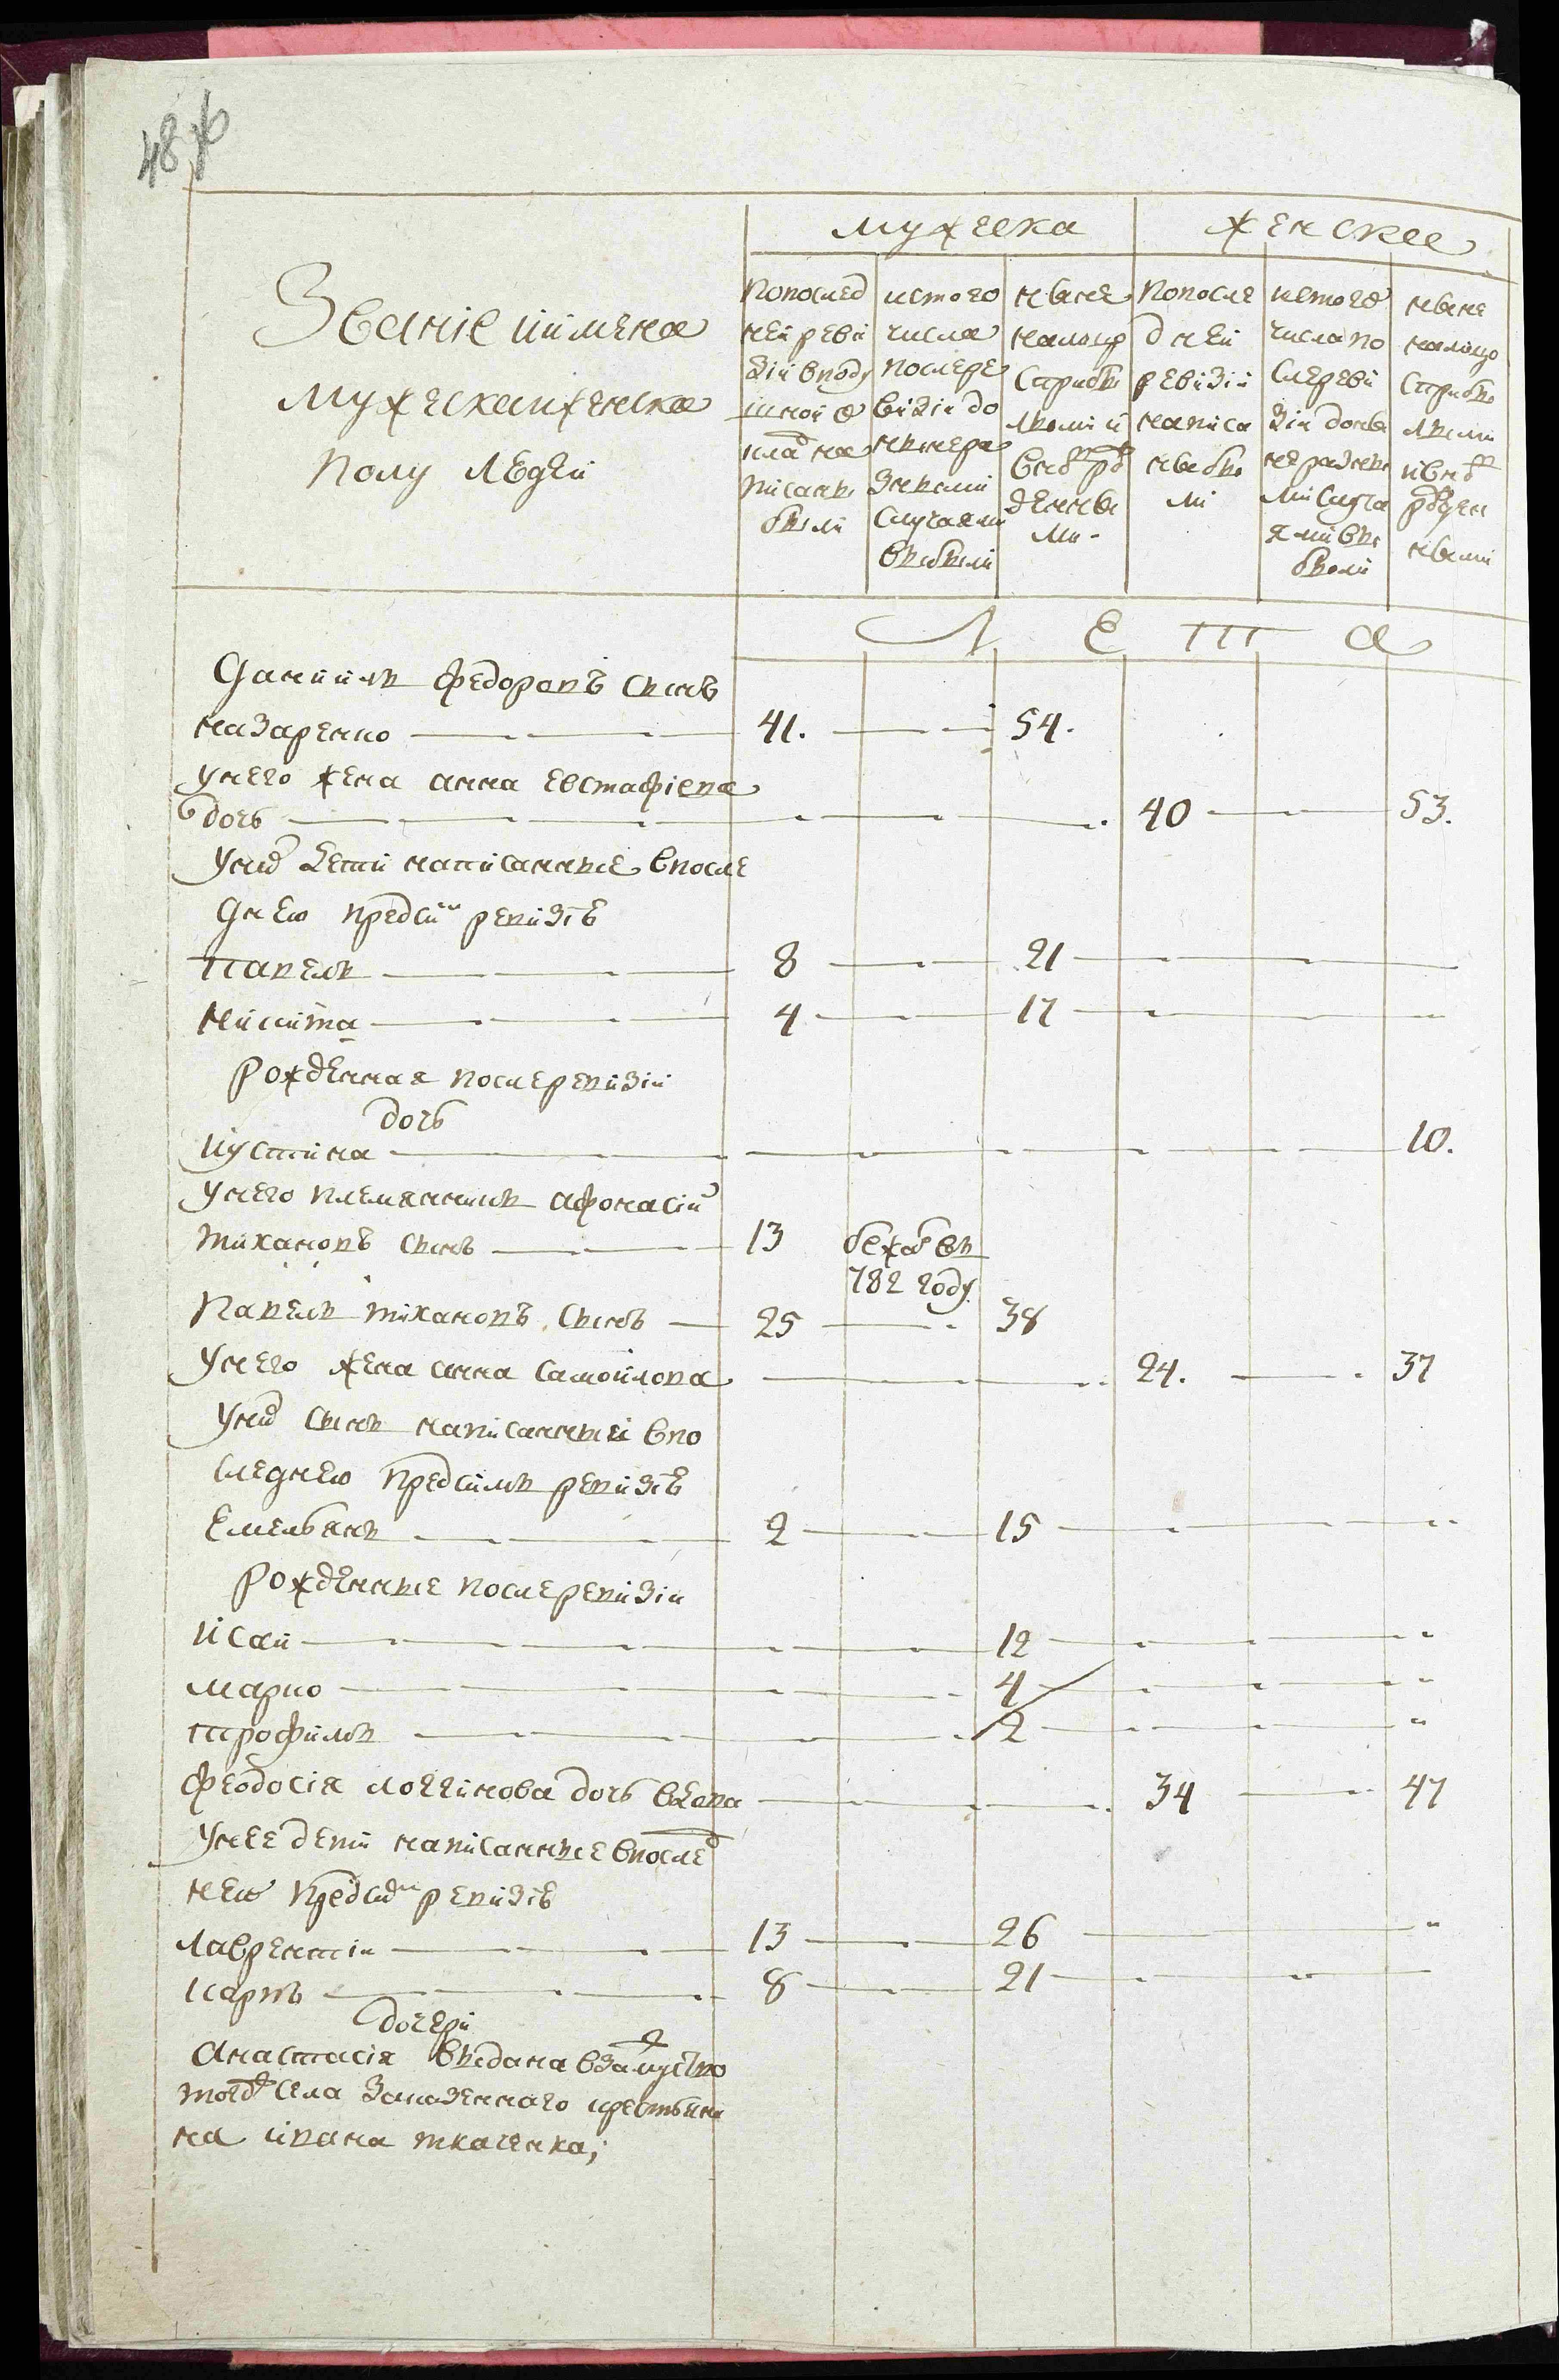 48
мужеска женскаго
Званіе и имена
мужеска и женска
полу людей
попослед
ней реви
зіи вподу
шной о
клад на
писаны
были
ис того
числа
после ре
визіи до
ныне ра
зными
случаями
выбыли
ныне
налицо
с прибы
лыми и
внов рож
денны
ми
попосле
дней
ревизіи
написа
ны бы
ли
ис того
числа по
сле реви
зіи доны
не разны
ми случа
ями вы
были
ныне
налицо
с прибы
лыми
и внов
рожден
ными
Л Е Т А
Даниилъ федоровъ сынъ
назаренко 41. 54.
унего жена анна евстафіева
дочь 40 53.
Уних дети написанные впосле
днею пред сим ревизію
Павелъ 8 21
Никита 4 17
Рожденная после ревизіи
дочь
Иустина 10.
Унего племянникъ афонасій
тихановъ сынъ 13 бежал въ
782 году
Павелъ тихановъ сынъ 25 38
Унего жена анна самойлова 24. 37
Уних сынъ написанный впо
следнею пред симъ ревизію
Емельянъ 2 15
Рожденные после ревизіи
Исай 12
Марко 4
Трофимъ 2
Феодосія логгінова дочь вдова 34 47
Унее дети написанные впослед
нею пред сим ревизію
Лаврентіи 13 26
Карпъ 8 21
дочери
Анастасія выдана взамужство
того ж села крестьяни
на ивана ткаченка;